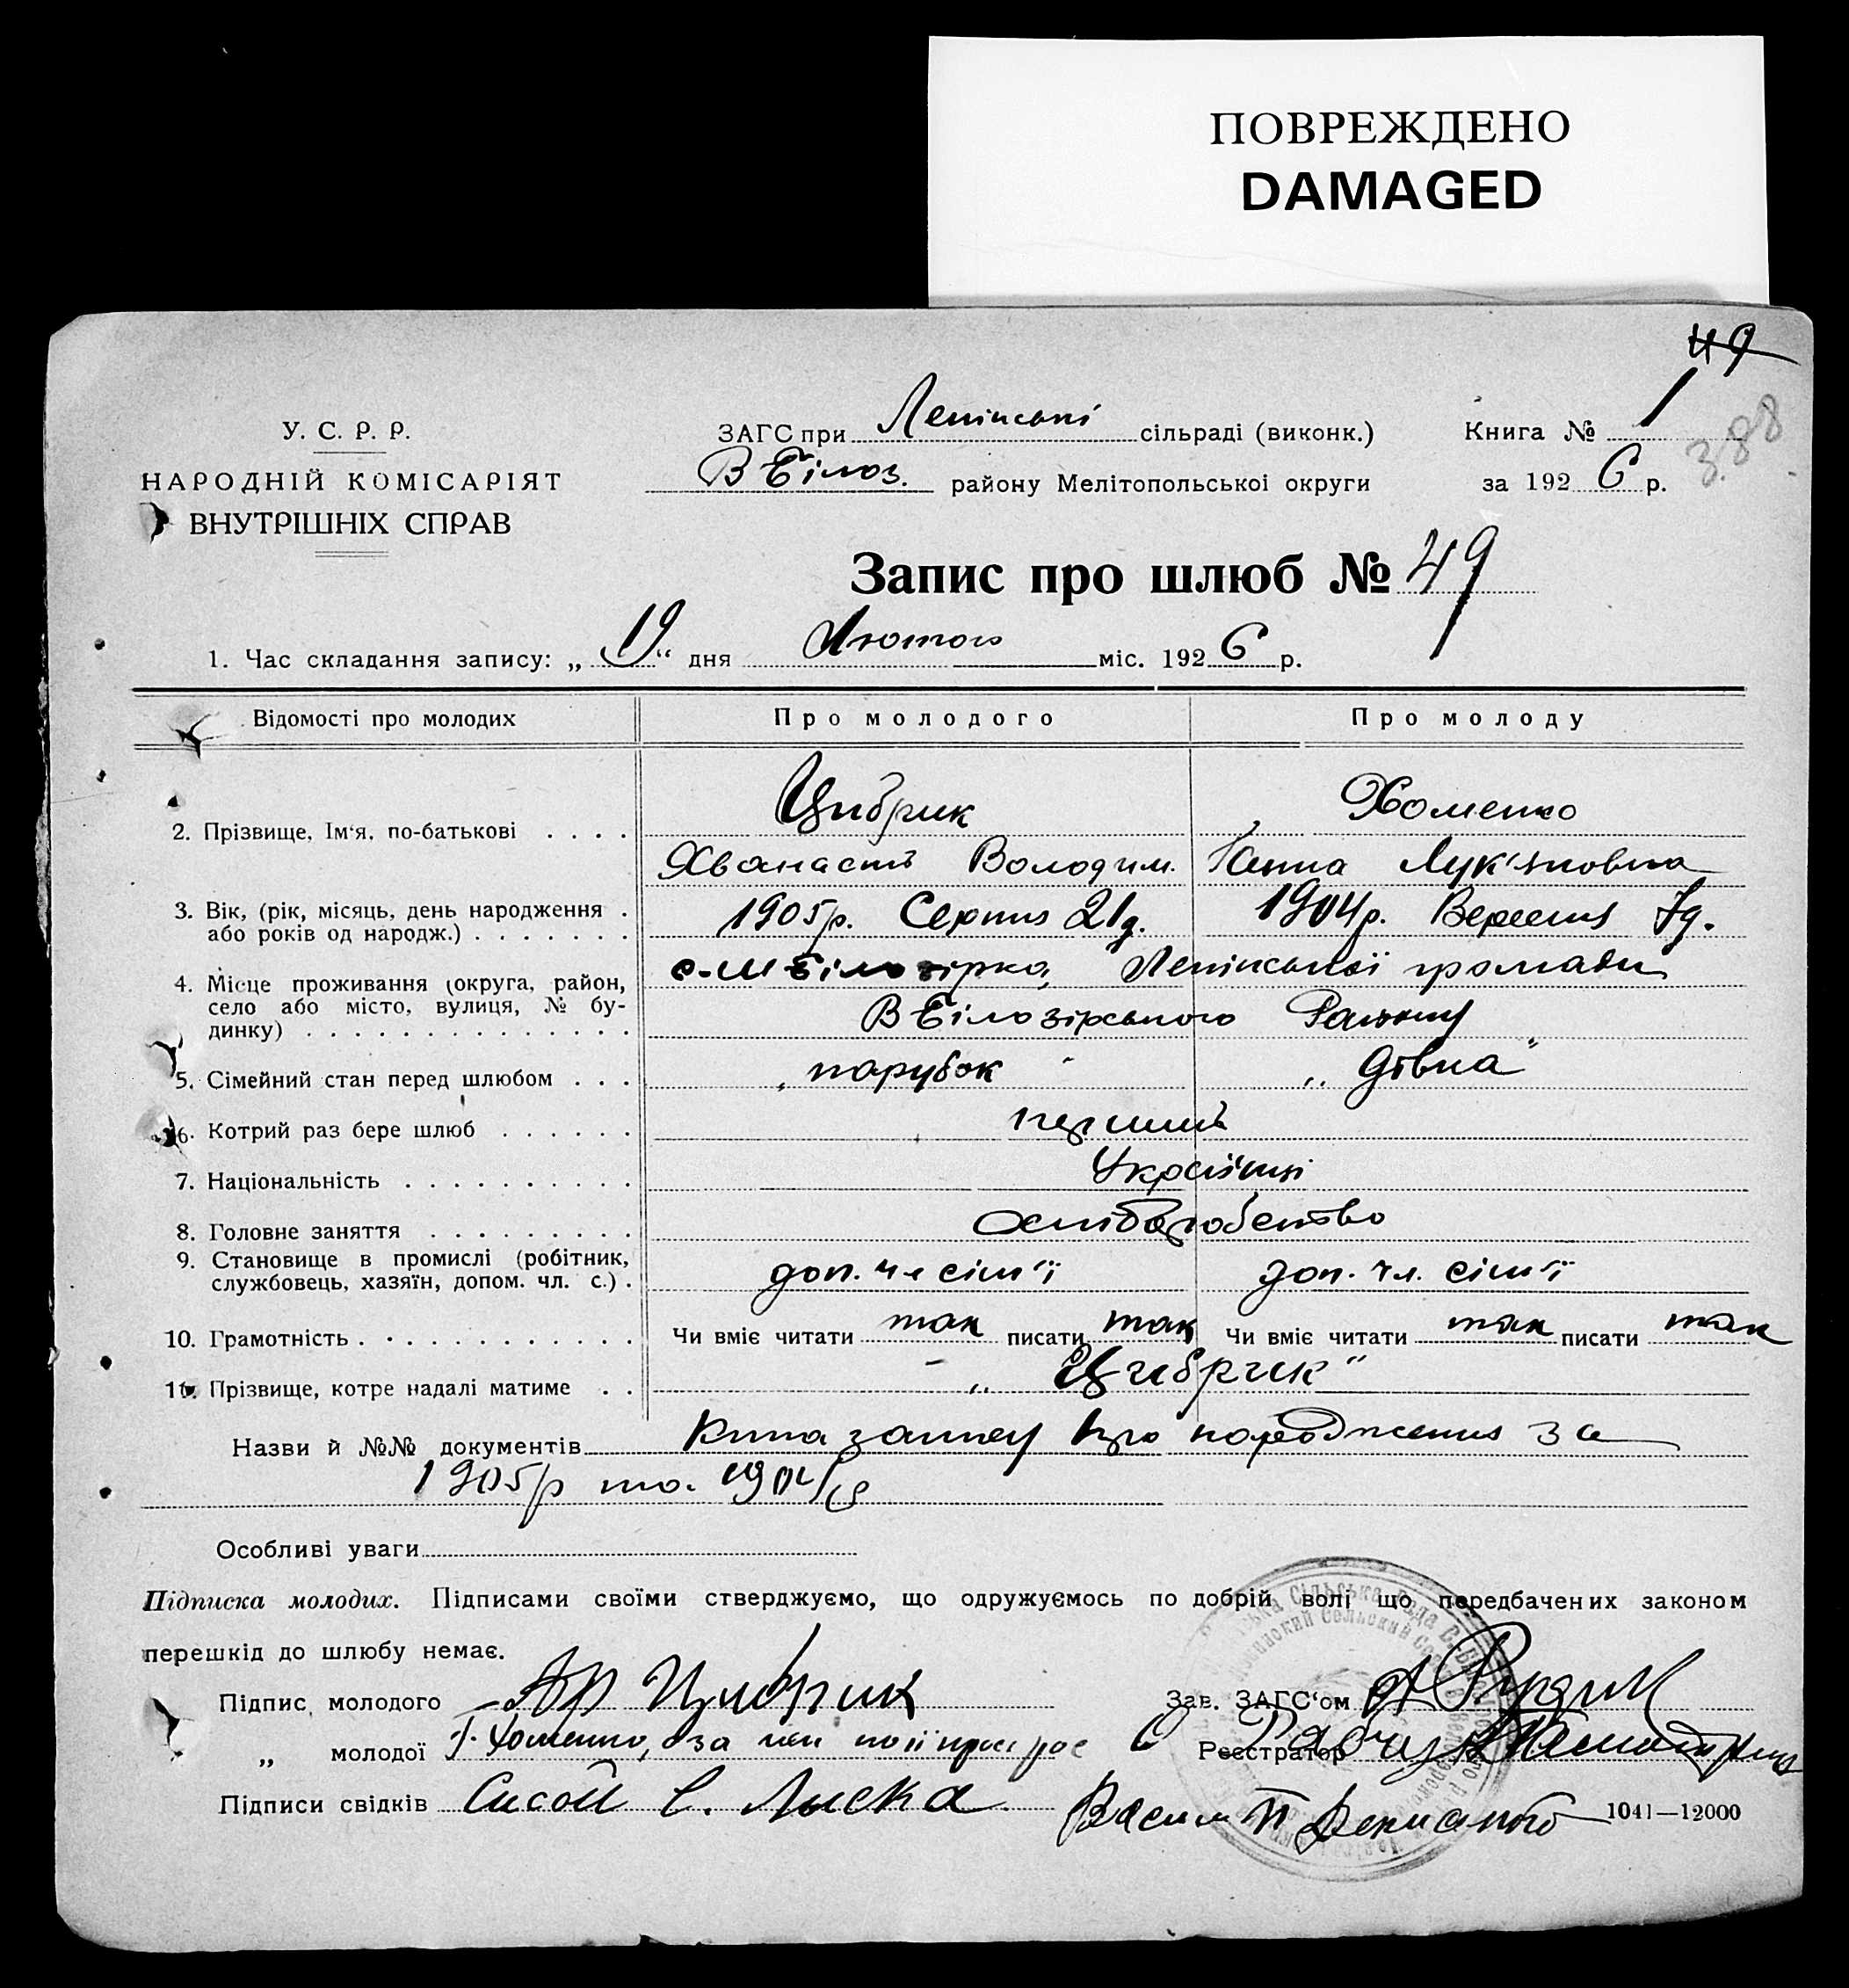 ПОВРЕЖДЕНО
DAMAGED
49
У. С. Р. Р.
НАРОДНІЙ КОМІСАРІЯТ
ВНУТРІШНІХ СПРАВ
ЗАГС при Ленінські сільраді (виконк.)
В Білоз. району Мелітопольської округи
Книга № 1
388
за 1926 р.
Запис про шлюб № 49
1. Час складання запису: „19“ дня Лютого міс. 1926 р.
Відомості про молодих Про молодого Про молоду
2. Прізвище, Ім‘я, по-батькові . . . . Цибрик Хоменко
Хванасій Володим. Ганна Лук'яновна
3. Вік, (рік, місяць, день народження . 1905р. Серпня 21д. 1904р. Вересня 7д.
або років од народж.) . . . . . . .
4. Місце проживання (округа, район, с. М Білозірка, Ленінської громади
село або місто, вулиця, № бу-
динку) . . . . . . . . . . . . . . В Білозірського Району
5. Сімейний стан перед шлюбом . . . „парубок“ „дівка“
6. Котрий раз бере шлюб . . . . . . перший
7. Національність . . . . . . . . . . Українці
8. Головне заняття . . . . . . . . .
9. Становище в промислі (робітник,
службовець, хазяїн, допом. чл. с.) . доп. чл сім'ї доп. чл. сім'ї
10. Грамотність . . . . . . . . . . . Чи вміє читати так писати так Чи вміє читати так писати так
11. Прізвище, котре надалі матиме . . „Цибрик“
Назви й №№ документів Книга запису про народження за
1905/р та. 1904/р
Особливі уваги
Підписка молодих. Підписами своїми стверджуємо, що одружуємось по добрій волі що передбачених законом
перешкід до шлюбу немає.
Підпис молодого Цибрик Зав. ЗАГС‘ом А Рудик
„ молодої Г. Хоменко, за Реєстратор
Підписи свідків Сисой С. Лыска
1041—12000